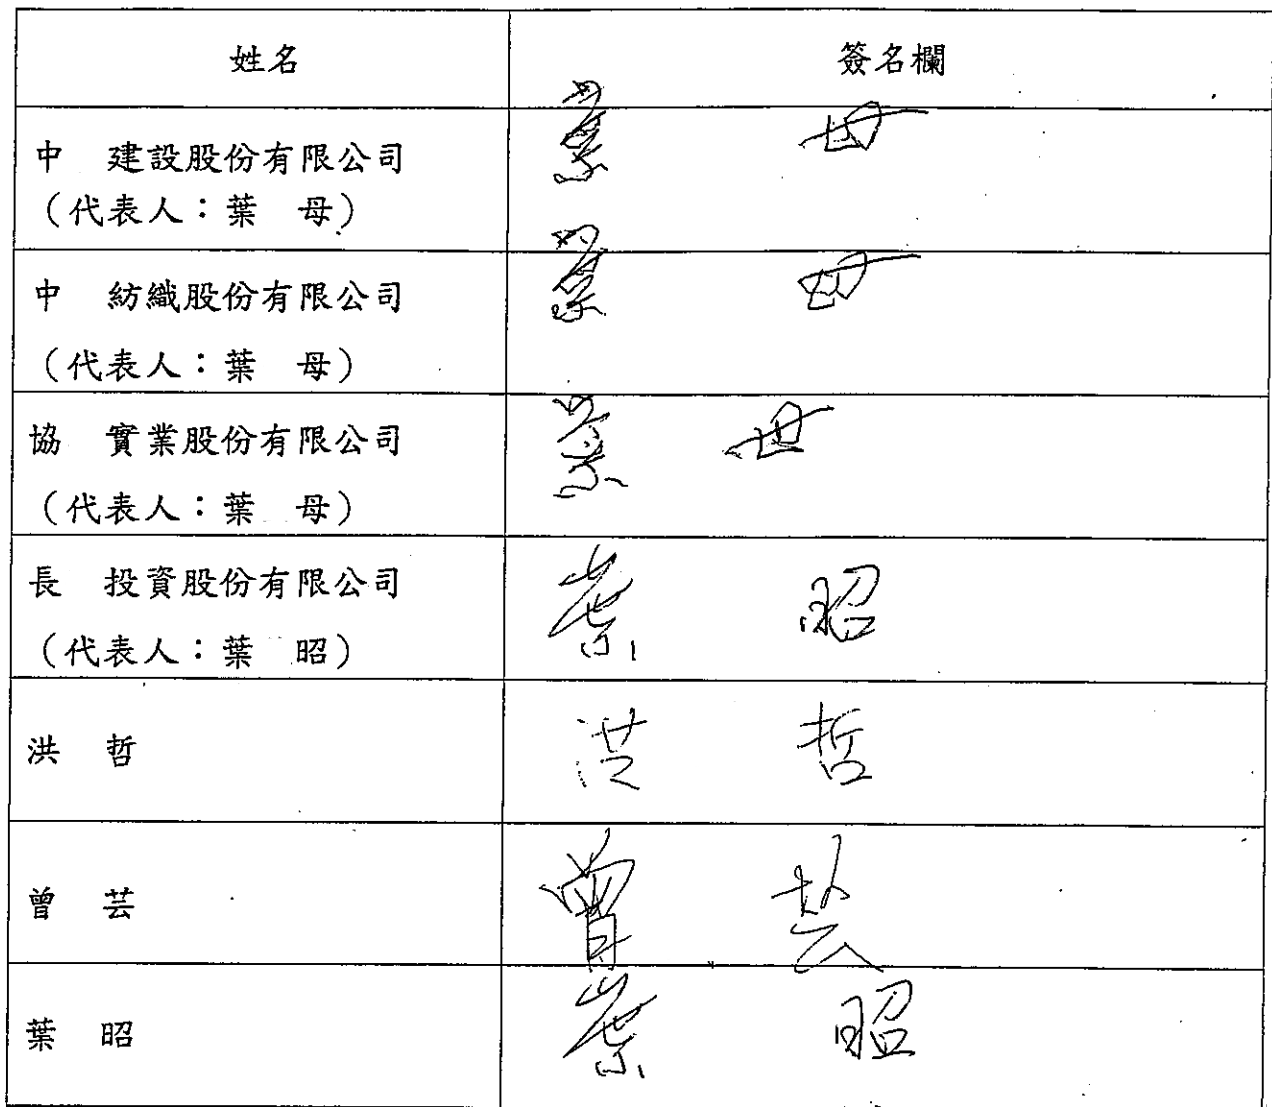 姓名 簽名欄
中 建設股份有限公司
(代表人：葉 母) 葉 母
中 紡織股份有限公司
(代表人：葉 母) 葉 母
協 實業股份有限公司
(代表人：葉 母) 葉 母
長 投資股份有限公司
(代表人：葉 昭) 葉 昭
洪 哲 洪 哲
曾 芸 曾 芸
葉 昭 葉 昭